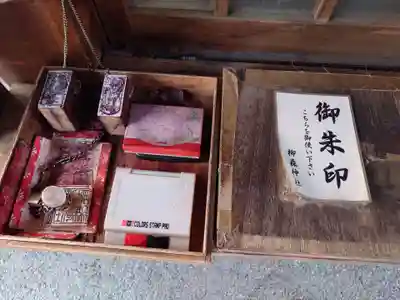 御朱印
こちらを御使い下さい
柳森神社
COLORS STAMP PAD